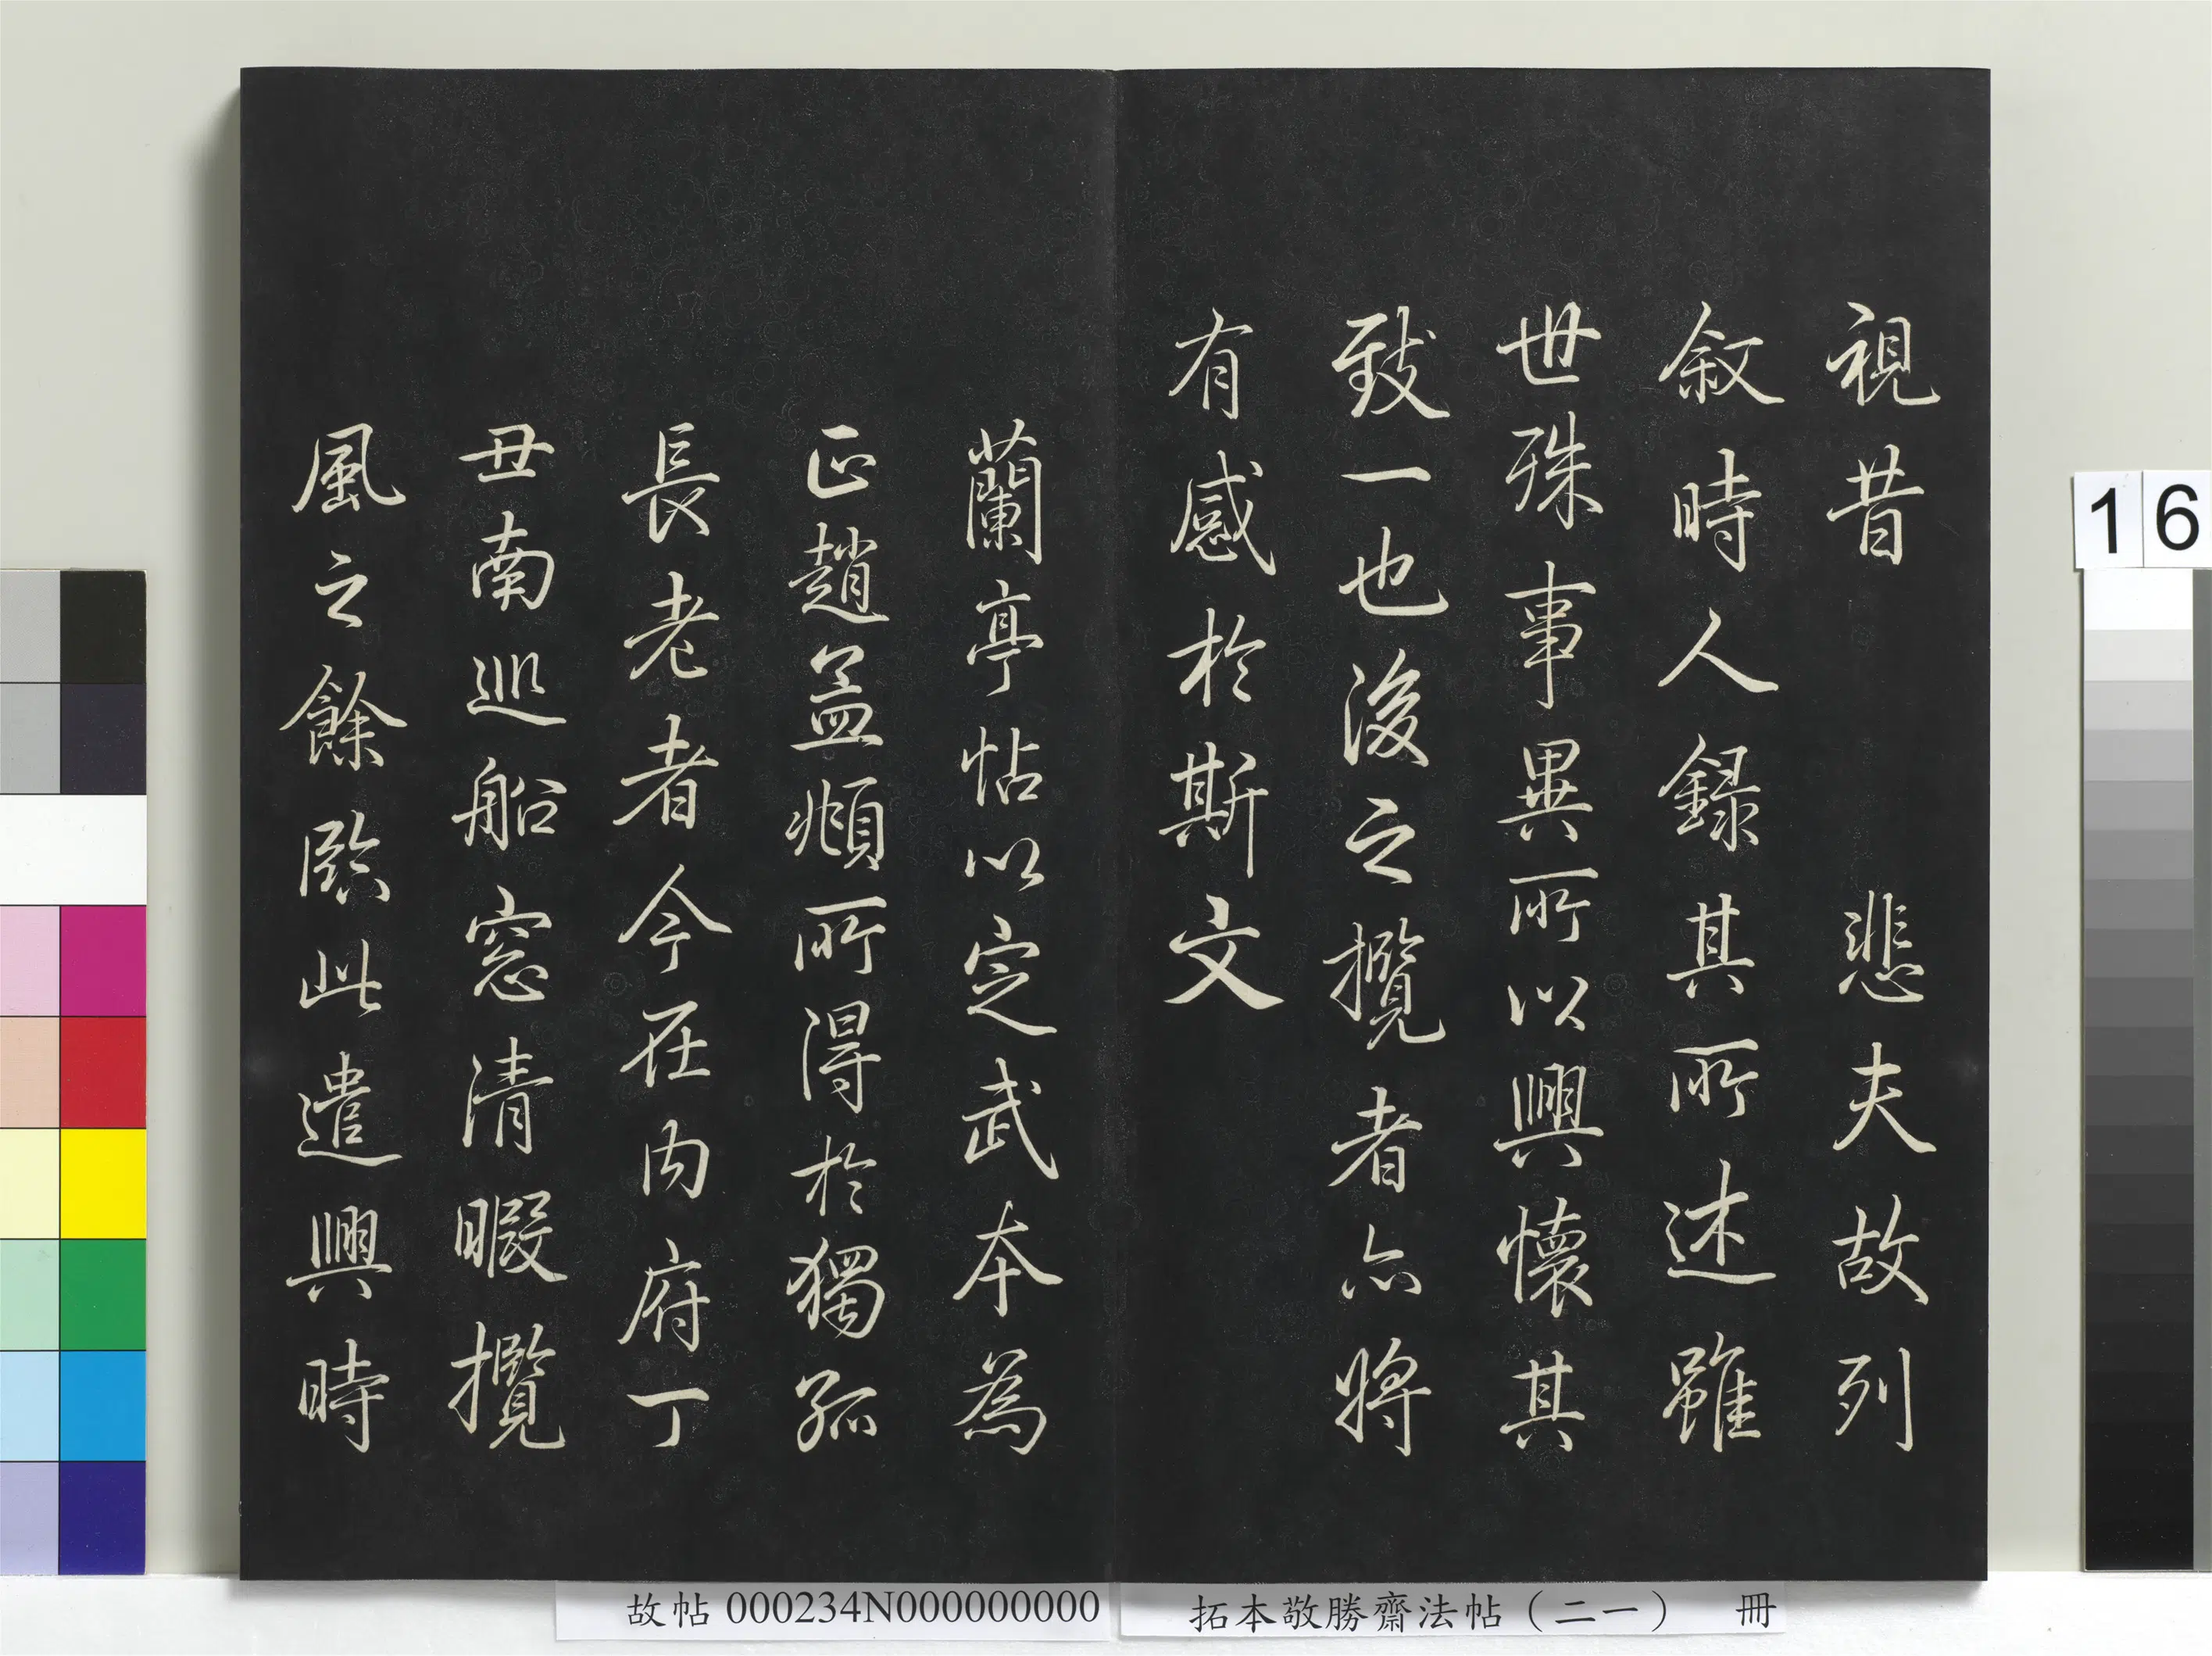 視昔悲夫故列
叙時人録其所述雖
世殊事異所以興懷其
致一也後之攬者亦將
有感於斯文
蘭亭帖以定武本為
正趙孟頫所得於獨孤
長老者今在内府丁
丑南巡船窓清暇攬
風之餘臨此遣興時
故帖 000234N000000000
拓本敬勝齋法帖（二一） 冊
16